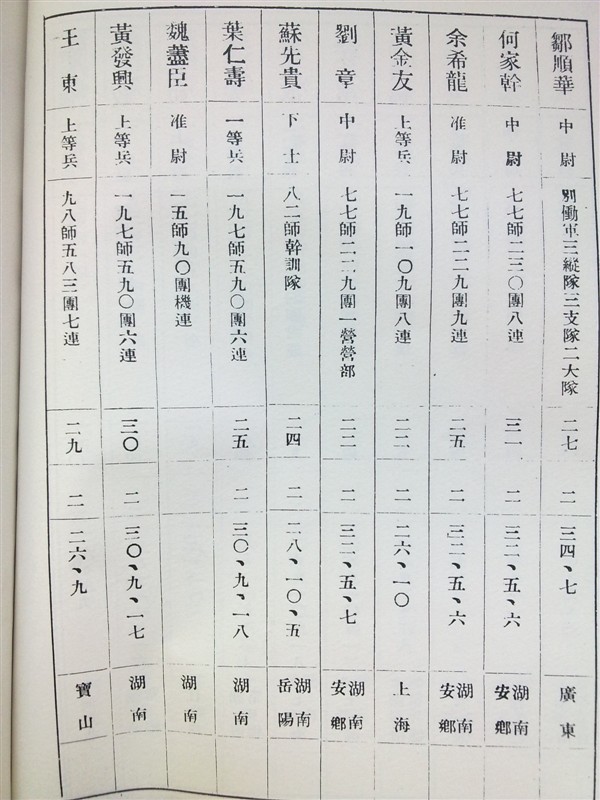 鄒順華 中尉 別働軍三縱隊三支隊二大隊 二七 二 三四、七 廣東
何家幹 中尉 七七師二三〇團八連 三一 二 三二、五、六 湖南安鄉
余希龍 准尉 七七師二二九團九連 二五 二 三二、五、六 湖南安鄉
黃金友 上等兵 一九師一〇九團八連 二二 二 二六、一〇 上海
劉章 中尉 七七師二二九團一營營部 二二 二 三二、五、七 湖南安鄉
蘇先貴 下士 八二師幹訓隊 二四 二 二八、一〇、五 湖南岳陽
葉仁壽 一等兵 一九七師五九〇團六連 二五 二 三〇、九、一八 湖南
魏藎臣 准尉 一五師九〇團機連 湖南
黃發興 上等兵 一九七師五九〇團六連 三〇 二 三〇、九、一七 湖南
王東 上等兵 九八師五八三團七連 二九 二 二六、九 寶山